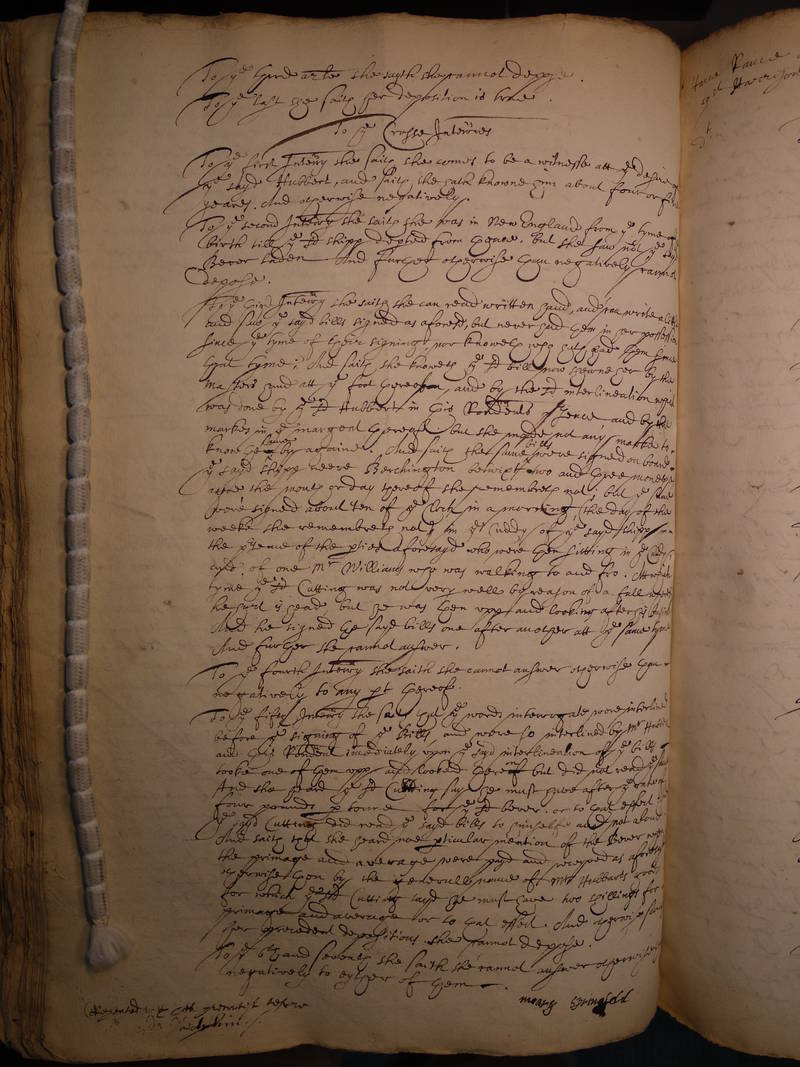 To ye third arle she sayth she cannot depose.
To ye last she saith her deposition is true.
To ye Crosse Interries
To ye first Interry she saith she comes to be a witnesse att ye desire of
ye sayd Hubbert, and saith she hath knowne him about four or five
yeares. And otherwise negatively.
To ye second Interry she saith she was in New England from ye tyme of
birth till ye sd shipp depted from thence. But she saw not ye sayd
Bever laden And further otherwise than negatively cannot
depose.
To ye third Interry she saith she can read written hand, and can write a little
and saw ye sayd bills signed as aforesd, but never had them in her possession
since ye tyme of their signing, nor knoweth who hath had them since
that tyme; And saith she knoweth ye sd bill now shewne her by the
Masters hand att ye foot thereof, and by the sd interlineation
was done by ye sd Hubbert in this Rendents psence and by the
markes in ye margent thereof but she made not any marke to
know them by againe. And saith the same bills were signed on board
ye sayd shipp neere Berchington betwixt two and three moneths
since the month or day thereof she remembreth not, but ye same
were signed about ten of ye clock in a morning (the day of the
weeke she remembreth not) in ye Cuddy of ye sayd shipp in
the psence of the pties aforesayd who were then sitting in ye Cuddy
of one Mr Williams who was walking to and fro. Att which
tyme ye sd Cutting was not very well by reason of a fall
he but he was then upp and looking after his
And he signed the sayd bills one after another att ye same tyme
And further she cannot answer.
To ye fourth Interry she saith she cannot answer otherwise than
negatively to any pt thereof.
To ye fifth Interry she saith that ye words interrogate were interlined
before ye signing of ye Bills and were so interlined by Mr Hubbert
and this Rendent imediately upon ye sayd interlineation of ye bills
tooke one of them upp and looked thereon but did not read ye same
And she heard ye sd Cutting say he must have after ye rate of
four pounds p tonne for ye sd Bever, or to that effect
ye sayd Cutting did read ye sayd bills to himselfe and not aloud
And saith that she heard noe pticular mention of the Bever nor
the primage and average were payd and receyved as aforesd
otherwise than by the generall name of Mr Hubbarts goods
for which ye sd Cutting sayd he must have two shillings for
primage and average or to that effect. And otherwise saving
her precedent depositions she cannot depose.
To ye 6th and seventh she saith she cannot answer otherwise
negatively to eyther of them.
Repeated before
Mary Springfeld